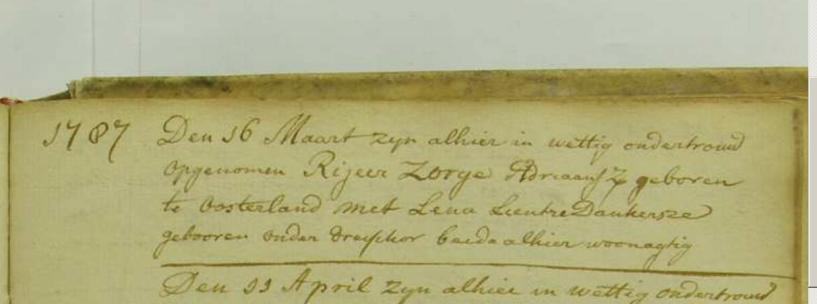 1787 Den 16 Maart zyn alhier in wettig ondertrouw
opgenomen Rijeer Zorge Adriaansz geboren
te Oosterland met Lena Lientre Dankersze
gebooren onder Dreischor beide alhier woonagtig
Den 11 April zyn alhier in wettig ondertrouw